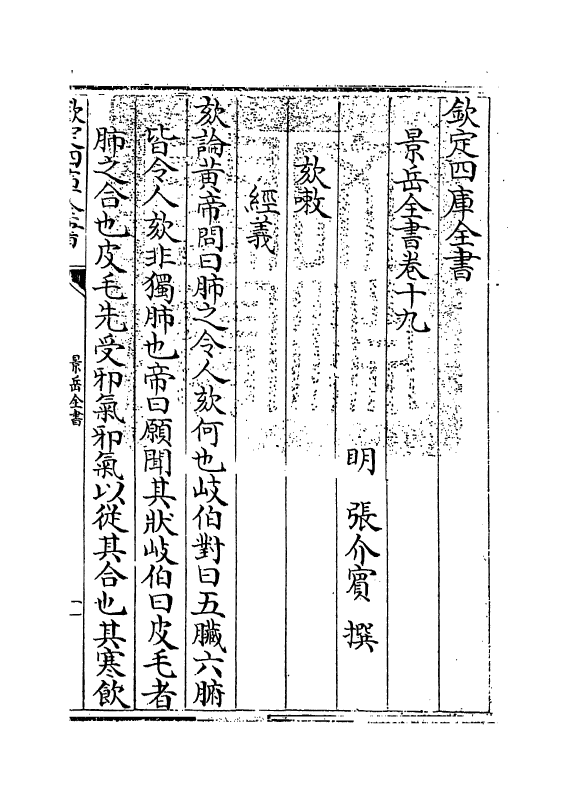 欽定四庫全書
景岳全書卷十九
明 張介賓 撰
欬嗽
經義
欬論黃帝問曰肺之令人欬何也岐伯對曰五臟六腑
皆令人欬非獨肺也帝曰願聞其狀岐伯曰皮毛者
肺之合也皮毛先受邪氣邪氣以從其合也其寒飲
欽定四庫全書
景岳全書
一